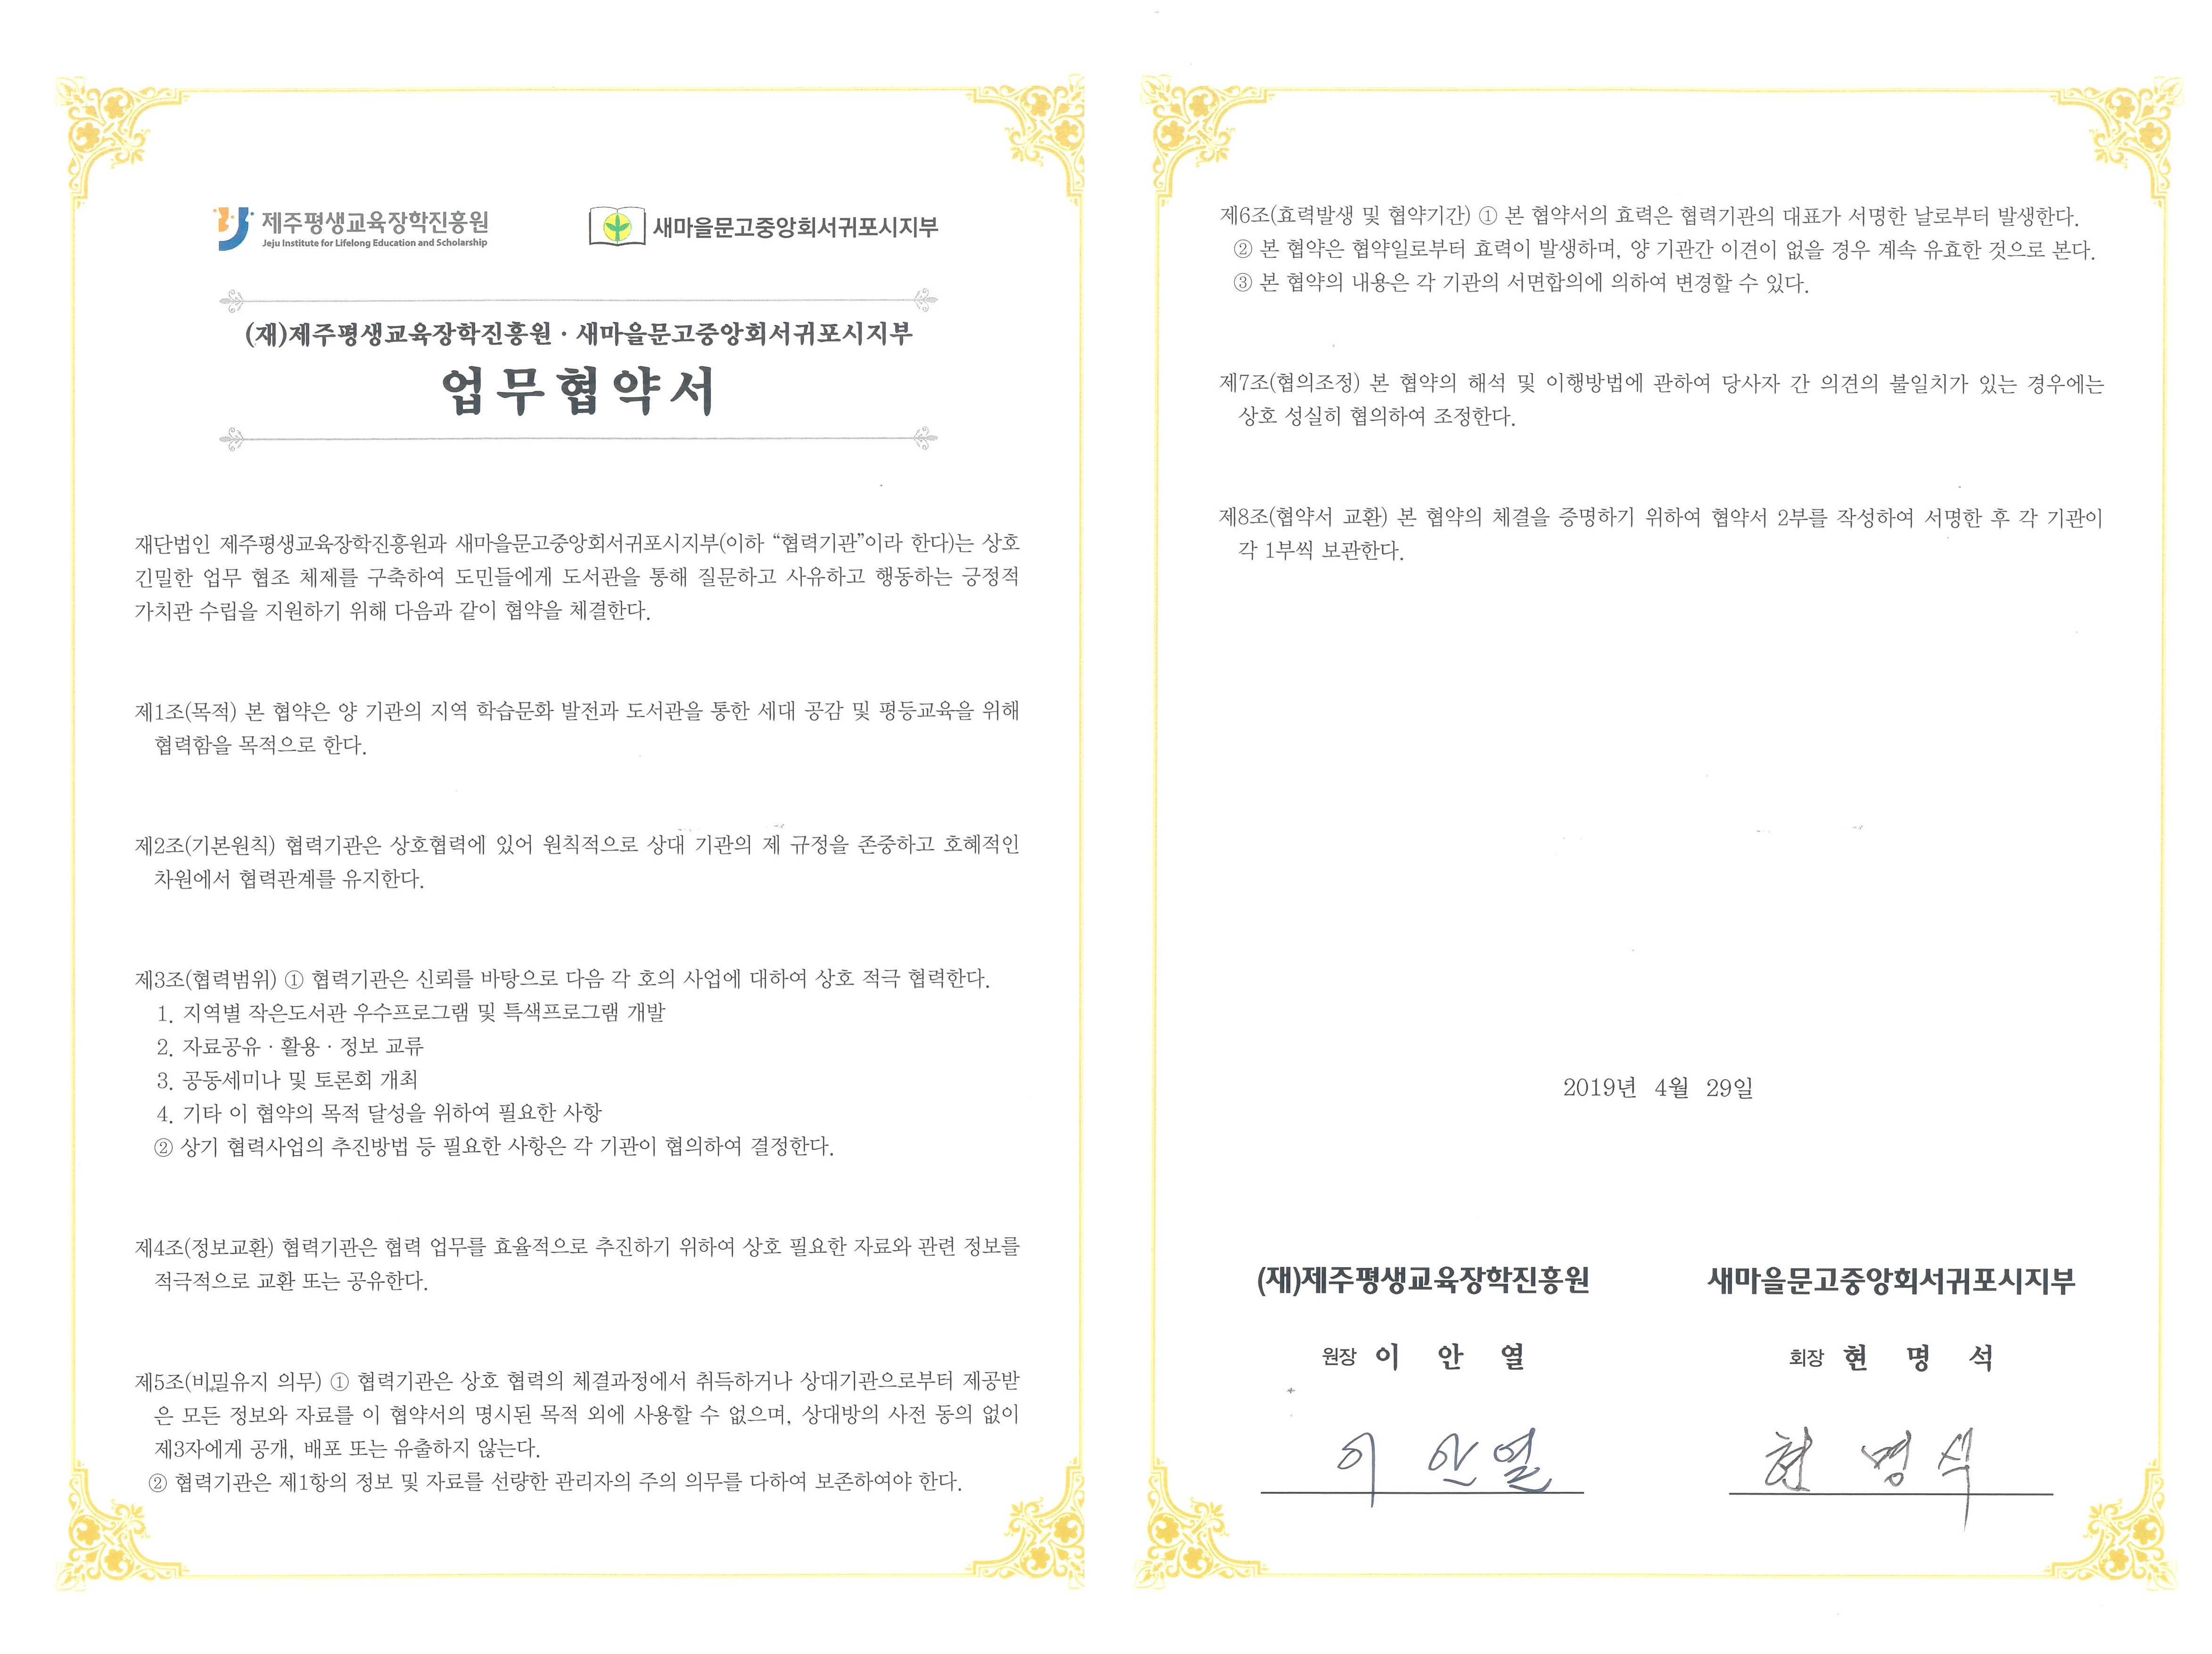 제주평생교육장학진흥원
Jeju Institute for Lifelong Education and Scholarship
새마을문고중앙회서귀포시지부
(재)제주평생교육장학진흥원 · 새마을문고중앙회서귀포시지부
업무협약서
재단법인 제주평생교육장학진흥원과 새마을문고중앙회서귀포시지부(이하 “협력기관”이라 한다)는 상호
긴밀한 업무 협조 체제를 구축하여 도민들에게 도서관을 통해 질문하고 사유하고 행동하는 긍정적
가치관 수립을 지원하기 위해 다음과 같이 협약을 체결한다.
제1조(목적) 본 협약은 양 기관의 지역 학습문화 발전과 도서관을 통한 세대 공감 및 평등교육을 위해
협력함을 목적으로 한다.
제2조(기본원칙) 협력기관은 상호협력에 있어 원칙적으로 상대 기관의 제 규정을 존중하고 호혜적인
차원에서 협력관계를 유지한다.
제3조(협력범위) ① 협력기관은 신뢰를 바탕으로 다음 각 호의 사업에 대하여 상호 적극 협력한다.
1. 지역별 작은도서관 우수프로그램 및 특색프로그램 개발
2. 자료공유 · 활용 · 정보 교류
3. 공동세미나 및 토론회 개최
4. 기타 이 협약의 목적 달성을 위하여 필요한 사항
② 상기 협력사업의 추진방법 등 필요한 사항은 각 기관이 협의하여 결정한다.
제4조(정보교환) 협력기관은 협력 업무를 효율적으로 추진하기 위하여 상호 필요한 자료와 관련 정보를
적극적으로 교환 또는 공유한다.
제5조(비밀유지 의무) ① 협력기관은 상호 협력의 체결과정에서 취득하거나 상대기관으로부터 제공받
은 모든 정보와 자료를 이 협약서의 명시된 목적 외에 사용할 수 없으며, 상대방의 사전 동의 없이
제3자에게 공개, 배포 또는 유출하지 않는다.
② 협력기관은 제1항의 정보 및 자료를 선량한 관리자의 주의 의무를 다하여 보존하여야 한다.
제6조(효력발생 및 협약기간) ① 본 협약서의 효력은 협력기관의 대표가 서명한 날로부터 발생한다.
② 본 협약은 협약일로부터 효력이 발생하며, 양 기관간 이견이 없을 경우 계속 유효한 것으로 본다.
③ 본 협약의 내용은 각 기관의 서면합의에 의하여 변경할 수 있다.
제7조(협의조정) 본 협약의 해석 및 이행방법에 관하여 당사자 간 의견의 불일치가 있는 경우에는
상호 성실히 협의하여 조정한다.
제8조(협약서 교환) 본 협약의 체결을 증명하기 위하여 협약서 2부를 작성하여 서명한 후 각 기관이
각 1부씩 보관한다.
2019년 4월 29일
(재)제주평생교육장학진흥원
원장 이 안 열
이 안 열
새마을문고중앙회서귀포시지부
회장 현 명 석
현 명 석